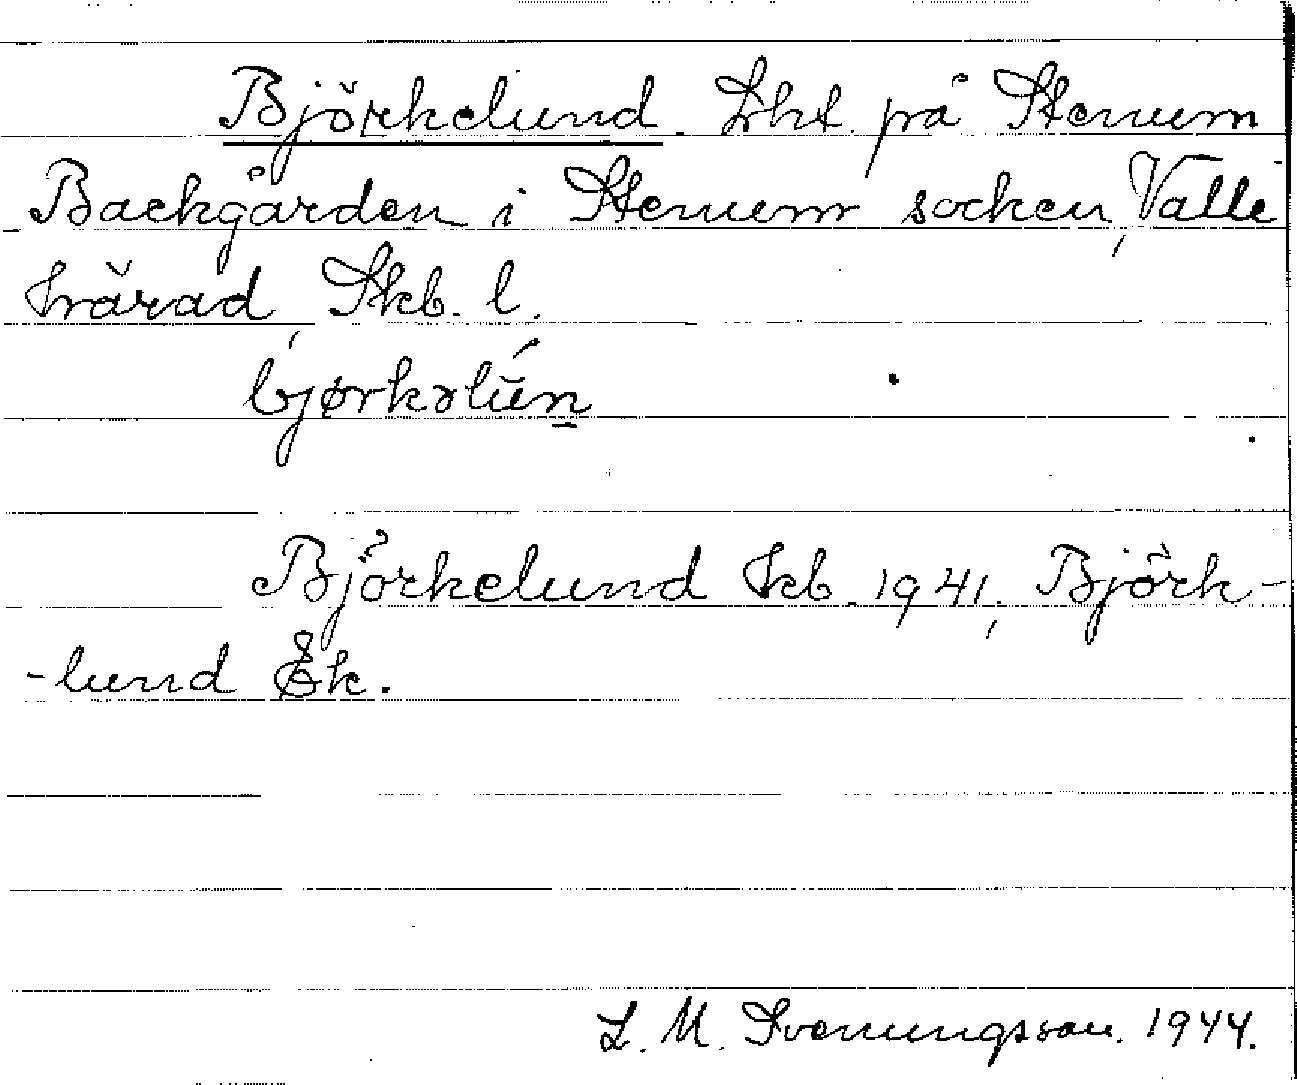 Björkelund. Lht. på Stenum
Backgården i Stenum socken, Valle
härad, Skb. l.
bjørkəlún
Björkelund Kb. 1941, Björk-
-lund Ek.
L. M. Svenungsson. 1944.